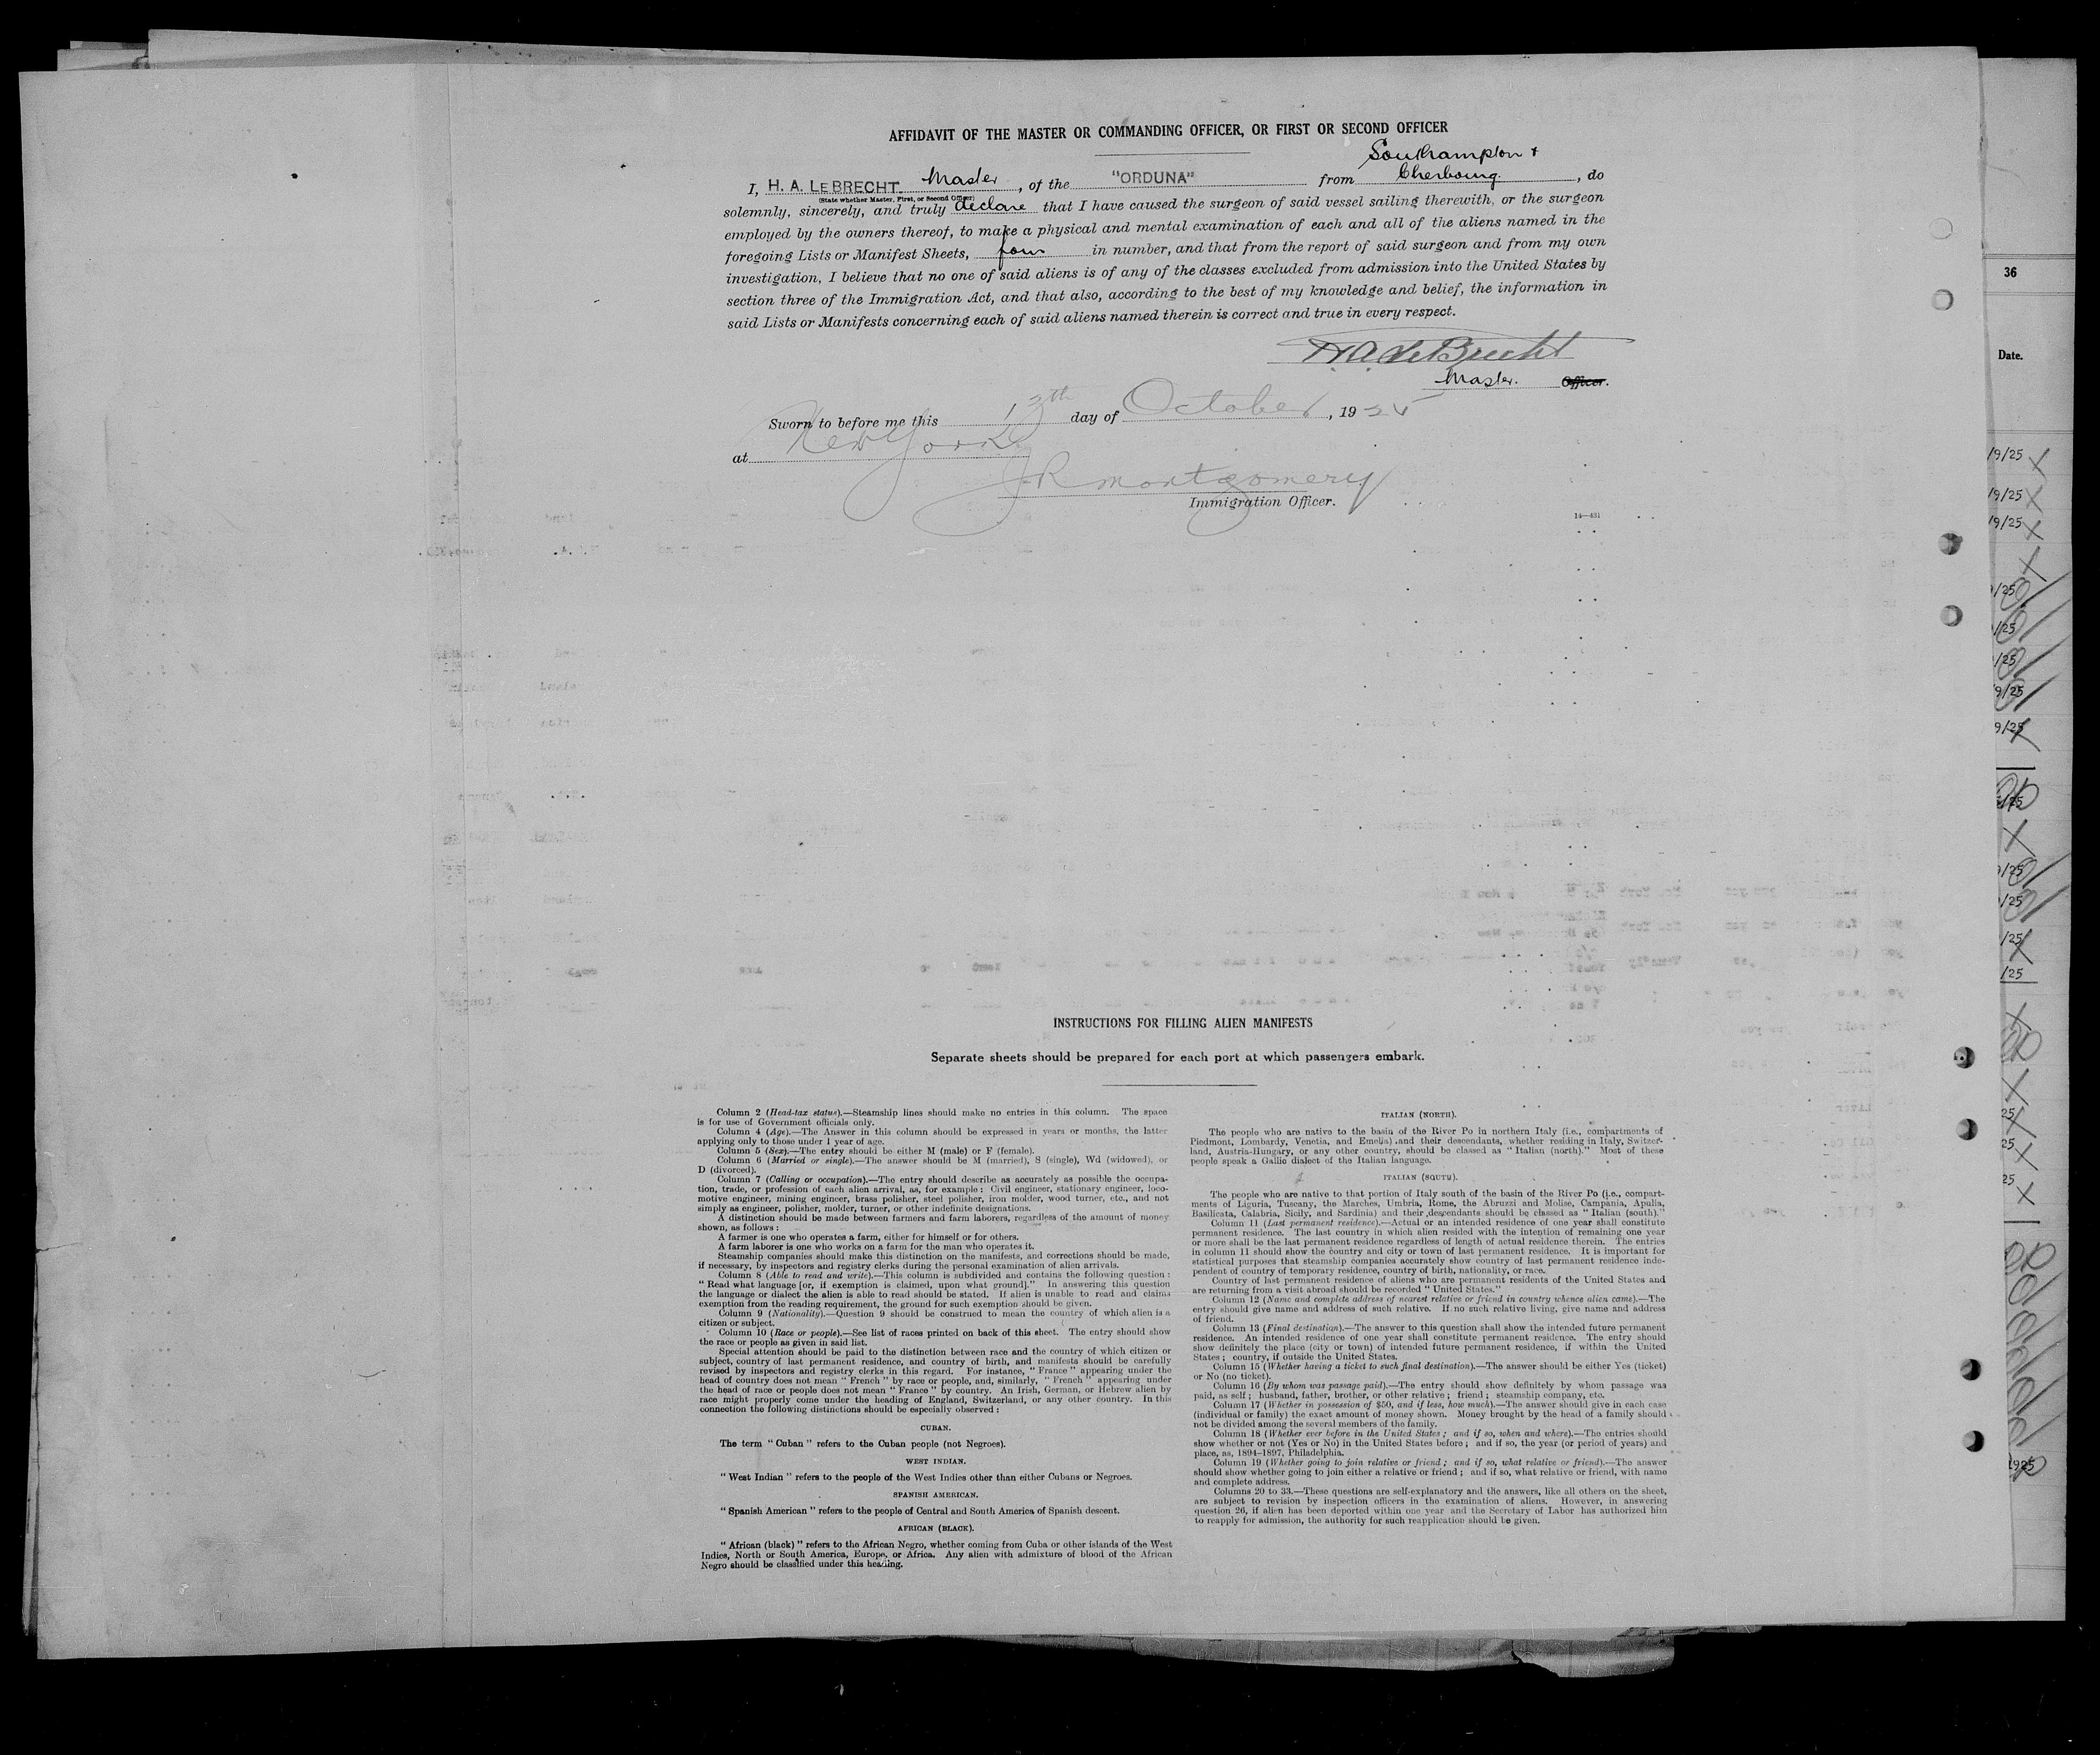 AFFIDAVIT OF THE MASTER OR COMMANDING OFFICER, OR FIRST OR SECOND OFFICER
Southampton +
I, H. A. LE BRECHT. Master, of the "ORDUNA" from Cherbourg., do
(State whether Master, First, or Second Officer)
solemnly, sincerely, and truly declare that I have caused the surgeon of said vessel sailing therewith, or the surgeon
employed by the owners thereof, to make a physical and mental examination of each and all of the aliens named in the
foregoing Lists or Manifest Sheets, four in number, and that from the report of said surgeon and from my own
investigation, I believe that no one of said aliens is of any of the classes excluded from admission into the United States by
section three of the Immigration Act, and that also, according to the best of my knowledge and belief, the information in
said Lists or Manifests concerning each of said aliens named therein is correct and true in every respect.
H A Le Brecht
Master. Officer.
Sworn to before me this 13th day of October, 1925
at New York
J R Montgomery
Immigration Officer.
14—431
36
Date.
/9/25
/9/25
/9/25
/25
/25
/25
9/25
9/25
/25
/25
/25
/25
/25
25
25
25
1925
INSTRUCTIONS FOR FILLING ALIEN MANIFESTS
Separate sheets should be prepared for each port at which passengers embark.
Column 2 (Head-tax status).—Steamship lines should make no entries in this column. The space
is for use of Government officials only.
Column 4 (Age).—The Answer in this column should be expressed in years or months, the latter
applying only to those under 1 year of age.
Column 5 (Sex).—The entry should be either M (male) or F (female).
Column 6 (Married or single).—The answer should be M (married), S (single), Wd (widowed), or
D (divorced).
Column 7 (Calling or occupation).—The entry should describe as accurately as possible the occupa-
tion, trade, or profession of each alien arrival, as, for example: Civil engineer, stationary engineer, loco-
motive engineer, mining engineer, brass polisher, steel polisher, iron molder, wood turner, etc., and not
simply as engineer, polisher, molder, turner, or other indefinite designations.
A distinction should be made between farmers and farm laborers, regardless of the amount of money
shown, as follows:
A farmer is one who operates a farm, either for himself or for others.
A farm laborer is one who works on a farm for the man who operates it.
Steamship companies should make this distinction on the manifests, and corrections should be made,
if necessary, by inspectors and registry clerks during the personal examination of alien arrivals.
Column 8 (Able to read and write).—This column is subdivided and contains the following question:
"Read what language [or, if exemption is claimed, upon what ground]." In answering this question
the language or dialect the alien is able to read should be stated. If alien is unable to read and claims
exemption from the reading requirement, the ground for such exemption should be given.
Column 9 (Nationality).—Question 9 should be construed to mean the country of which alien is a
citizen or subject.
Column 10 (Race or people).—See list of races printed on back of this sheet. The entry should show
the race or people as given in said list.
Special attention should be paid to the distinction between race and the country of which citizen or
subject, country of last permanent residence, and country of birth, and manifests should be carefully
revised by inspectors and registry clerks in this regard. For instance, "France" appearing under the
head of country does not mean "French" by race or people, and, similarly, "French" appearing under
the head of race or people does not mean "France" by country. An Irish, German, or Hebrew alien by
race might properly come under the heading of England, Switzerland, or any other country. In this
connection the following distinctions should be especially observed:
CUBAN.
The term "Cuban" refers to the Cuban people (not Negroes).
WEST INDIAN.
"West Indian" refers to the people of the West Indies other than either Cubans or Negroes.
SPANISH AMERICAN.
"Spanish American" refers to the people of Central and South America of Spanish descent.
AFRICAN (BLACK).
"African (black)" refers to the African Negro, whether coming from Cuba or other islands of the West
Indies, North or South America, Europe, or Africa. Any alien with admixture of blood of the African
Negro should be classified under this heading.
ITALIAN (NORTH).
The people who are native to the basin of the River Po in northern Italy (i.e., compartments of
Piedmont, Lombardy, Venetia, and Emelia) and their descendants, whether residing in Italy, Switzer-
land, Austria-Hungary, or any other country, should be classed as "Italian (north)." Most of these
people speak a Gallic dialect of the Italian language.
ITALIAN (SOUTH).
The people who are native to that portion of Italy south of the basin of the River Po (i.e., compart-
ments of Liguria, Tuscany, the Marches, Umbria, Rome, the Abruzzi and Molise, Campania, Apulia,
Basilicata, Calabria, Sicily, and Sardinia) and their descendants should be classed as "Italian (south)."
Column 11 (Last permanent residence).—Actual or an intended residence of one year shall constitute
permanent residence. The last country in which alien resided with the intention of remaining one year
or more shall be the last permanent residence regardless of length of actual residence therein. The entries
in column 11 should show the country and city or town of last permanent residence. It is important for
statistical purposes that steamship companies accurately show country of last permanent residence inde-
pendent of country of temporary residence, country of birth, nationality, or race.
Country of last permanent residence of aliens who are permanent residents of the United States and
are returning from a visit abroad should be recorded "United States."
Column 12 (Name and complete address of nearest relative or friend in country whence alien came).—The
entry should give name and address of such relative. If no such relative living, give name and address
of friend.
Column 13 (Final destination).—The answer to this question shall show the intended future permanent
residence. An intended residence of one year shall constitute permanent residence. The entry should
show definitely the place (city or town) of intended future permanent residence, if within the United
States; country, if outside the United States.
Column 15 (Whether having a ticket to such final destination).—The answer should be either Yes (ticket)
or No (no ticket).
Column 16 (By whom was passage paid).—The entry should show definitely by whom passage was
paid, as self; husband, father, brother, or other relative; friend; steamship company, etc.
Column 17 (Whether in possession of $50, and if less, how much).—The answer should give in each case
(individual or family) the exact amount of money shown. Money brought by the head of a family should
not be divided among the several members of the family.
Column 18 (Whether ever before in the United States; and if so, when and where).—The entries should
show whether or not (Yes or No) in the United States before; and if so, the year (or period of years) and
place, as, 1894-1897, Philadelphia.
Column 19 (Whether going to join relative or friend; and if so, what relative or friend).—The answer
should show whether going to join either a relative or friend; and if so, what relative or friend, with name
and complete address.
Columns 20 to 33.—These questions are self-explanatory and the answers, like all others on the sheet,
are subject to revision by inspection officers in the examination of aliens. However, in answering
question 26, if alien has been deported within one year and the Secretary of Labor has authorized him
to reapply for admission, the authority for such reapplication should be given.